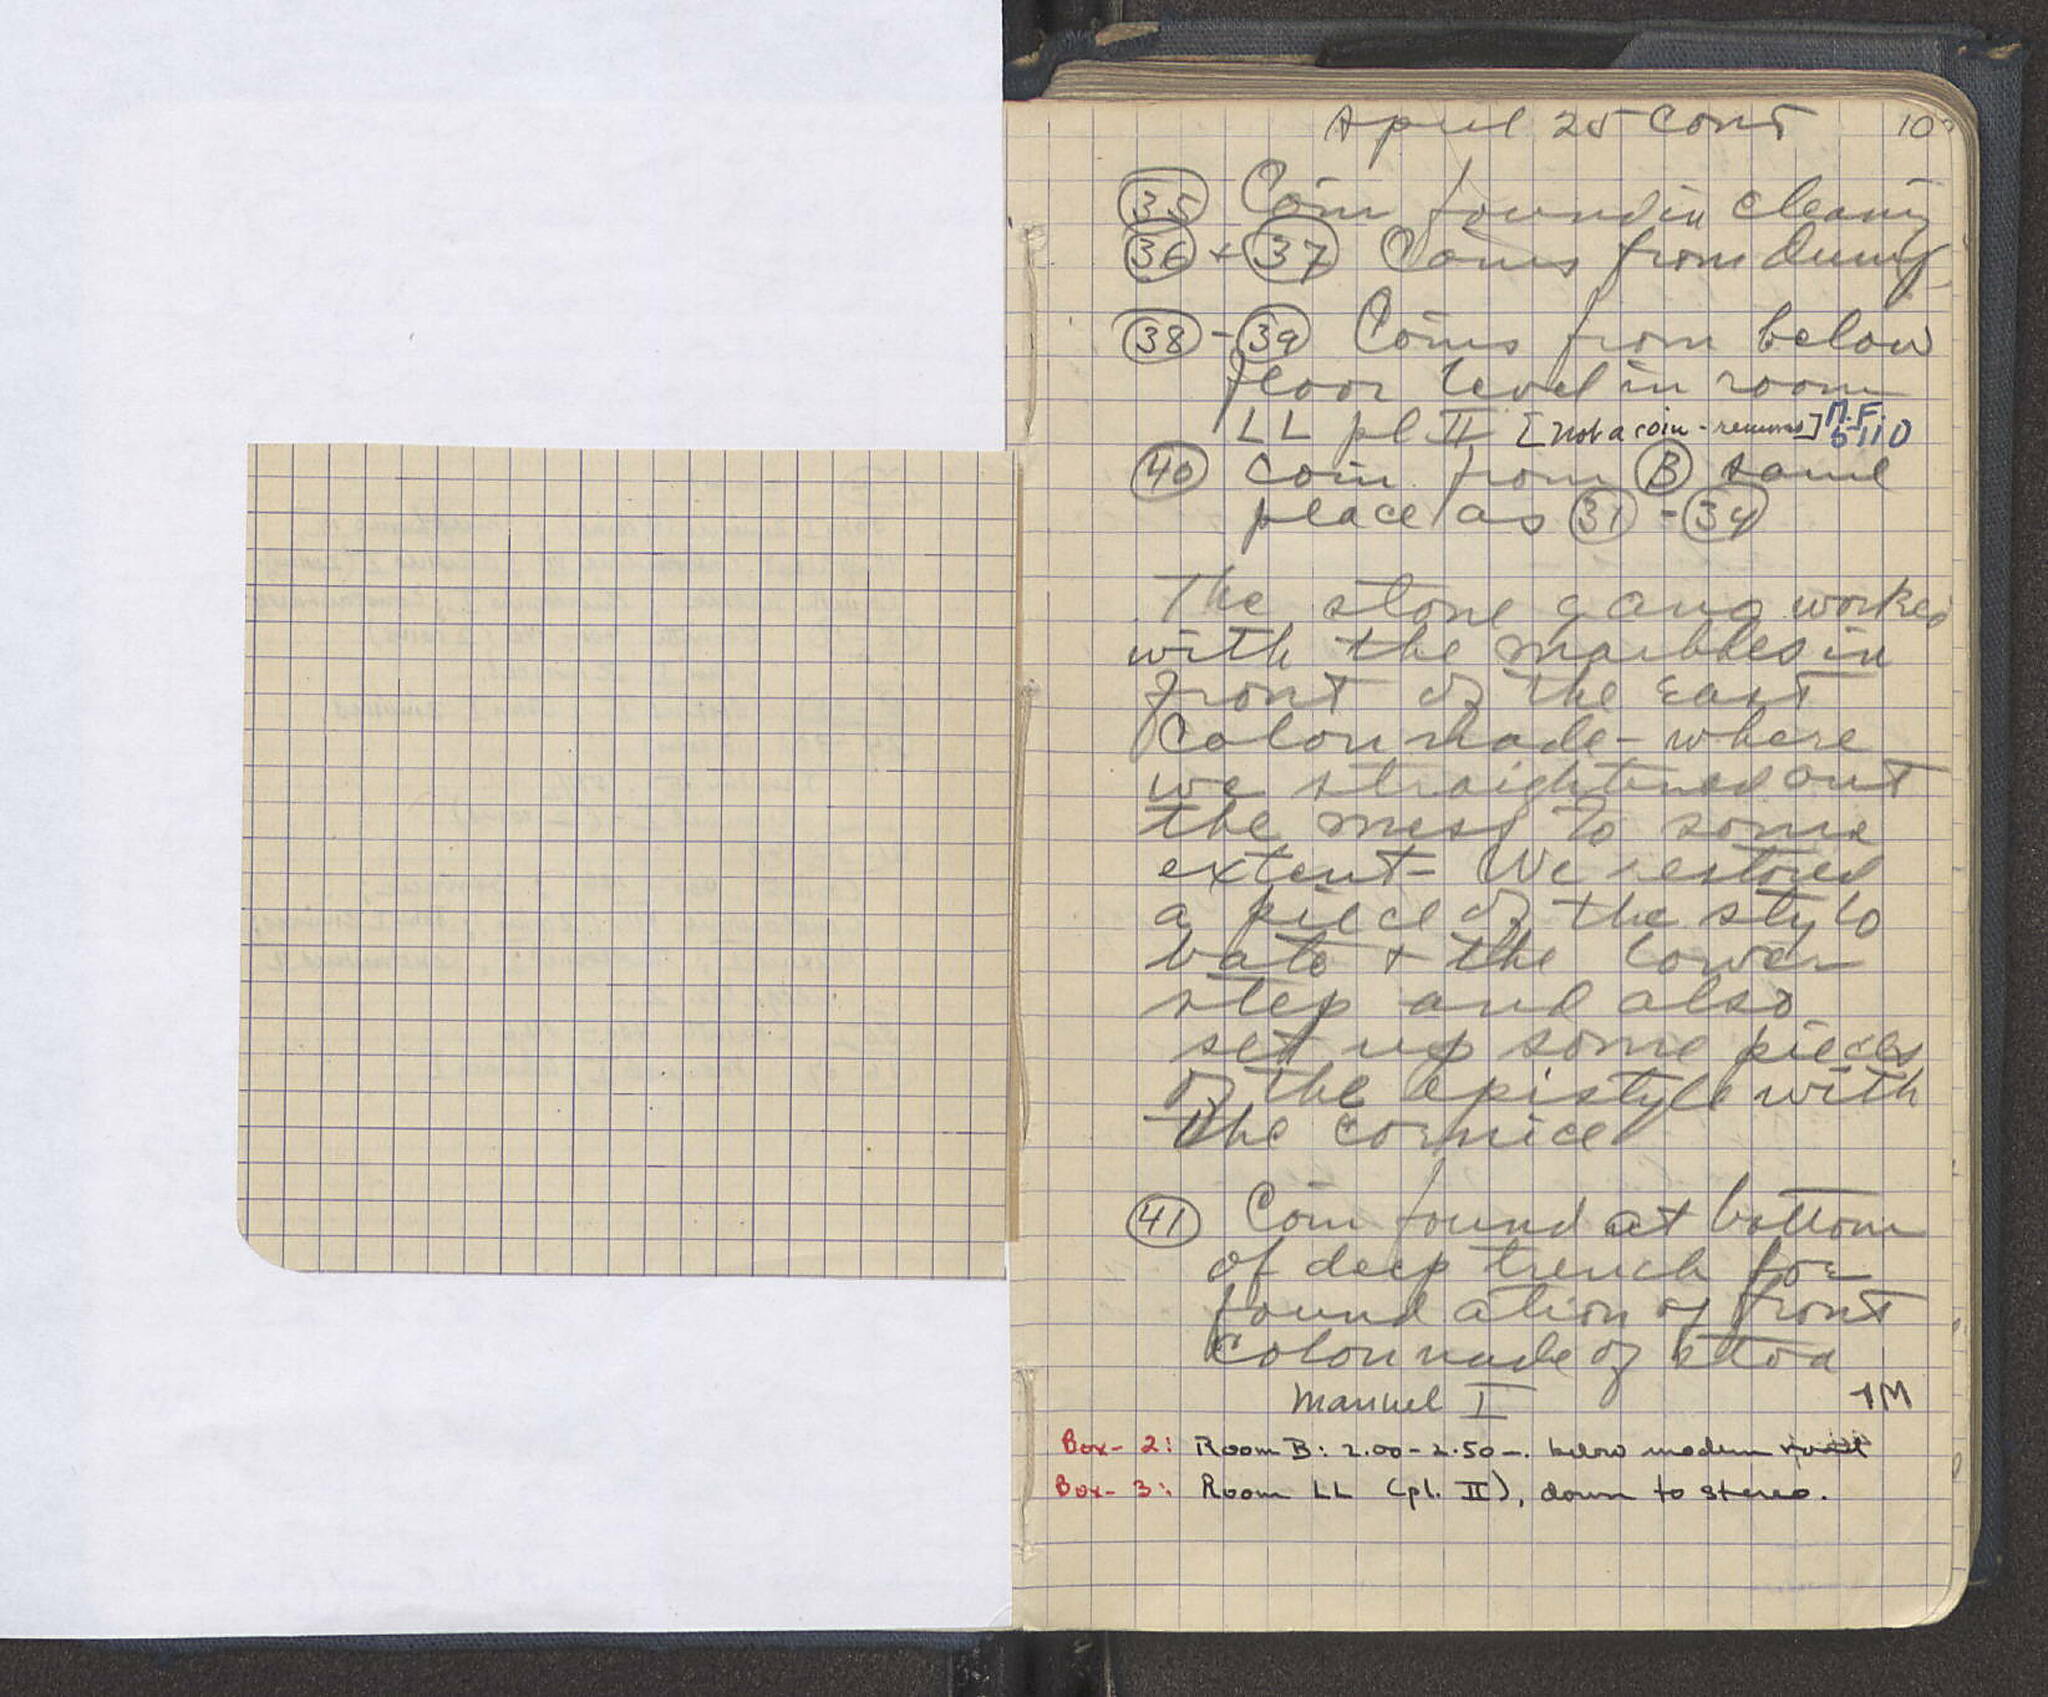 April 25 cont 10
35 Coin found in cleaning
36 + 37 Coins from dump
38 - 39 Coins from below
floor level in room
LL pl II [not a coin - removed] M.F.
5110
40 coin from B same
place as 31 - 34
The stone gang worked
with the marbles in
front of the East
Colonnade - where
we straightened out
the mess to some
extent - We restored
a piece of the stylo
bate + the lower
step and also
set up some pieces
of the epistyle with
the cornice
41 Coin found at bottom
of deep trench for
foundation of front
colonnade of stoa
Manuel I
Box - 2: Room B: 2.00 - 2.50 -. below modern
Box - 3: Room LL (pl. II), down to stereo.